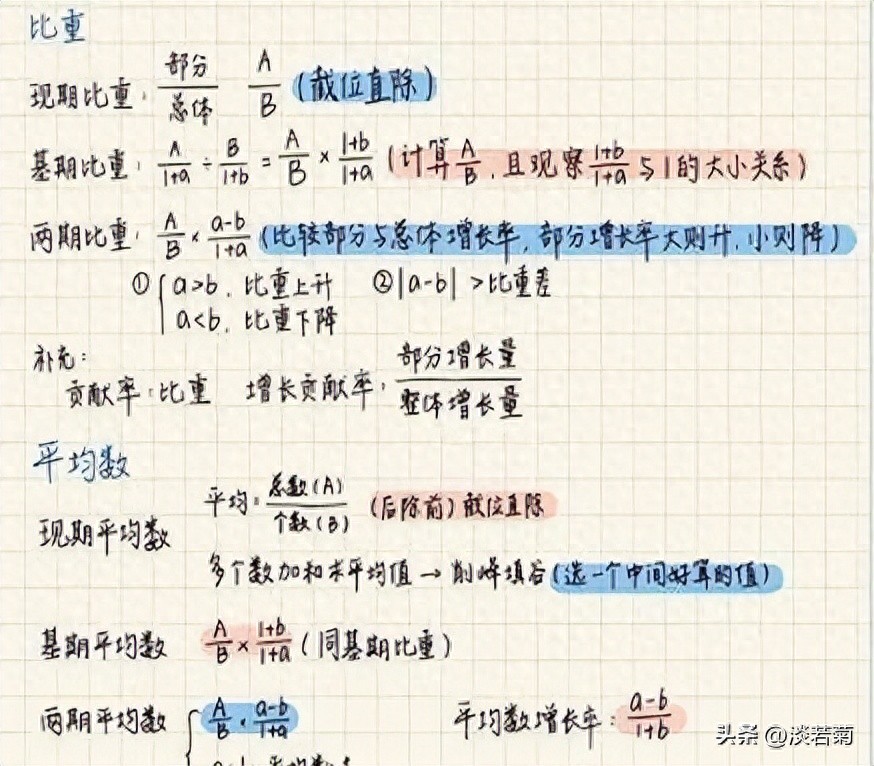 比重
现期比重: 部分/总体 A/B (截位直除)
基期比重: A/1+a ÷ B/1+b = A/B × 1+b/1+a (计算A/B, 且观察1+b/1+a与1的大小关系)
两期比重: A/B × a-b/1+a (比较部分与总体增长率, 部分增长率大则升, 小则降)
① { a>b, 比重上升 ② |a-b| >比重差
a<b, 比重下降
补充:
贡献率:比重 增长贡献率: 部分增长量/整体增长量
平均数
现期平均数 平均=总数(A)/个数(B) (后除前) 截位直除
多个数加和求平均值 → 削峰填谷(选一个中间好算的值)
基期平均数 A/B × 1+b/1+a (同基期比重)
两期平均数 { A/B × a-b/1+a 平均数增长率: a-b/1+b
头条 @淡若菊